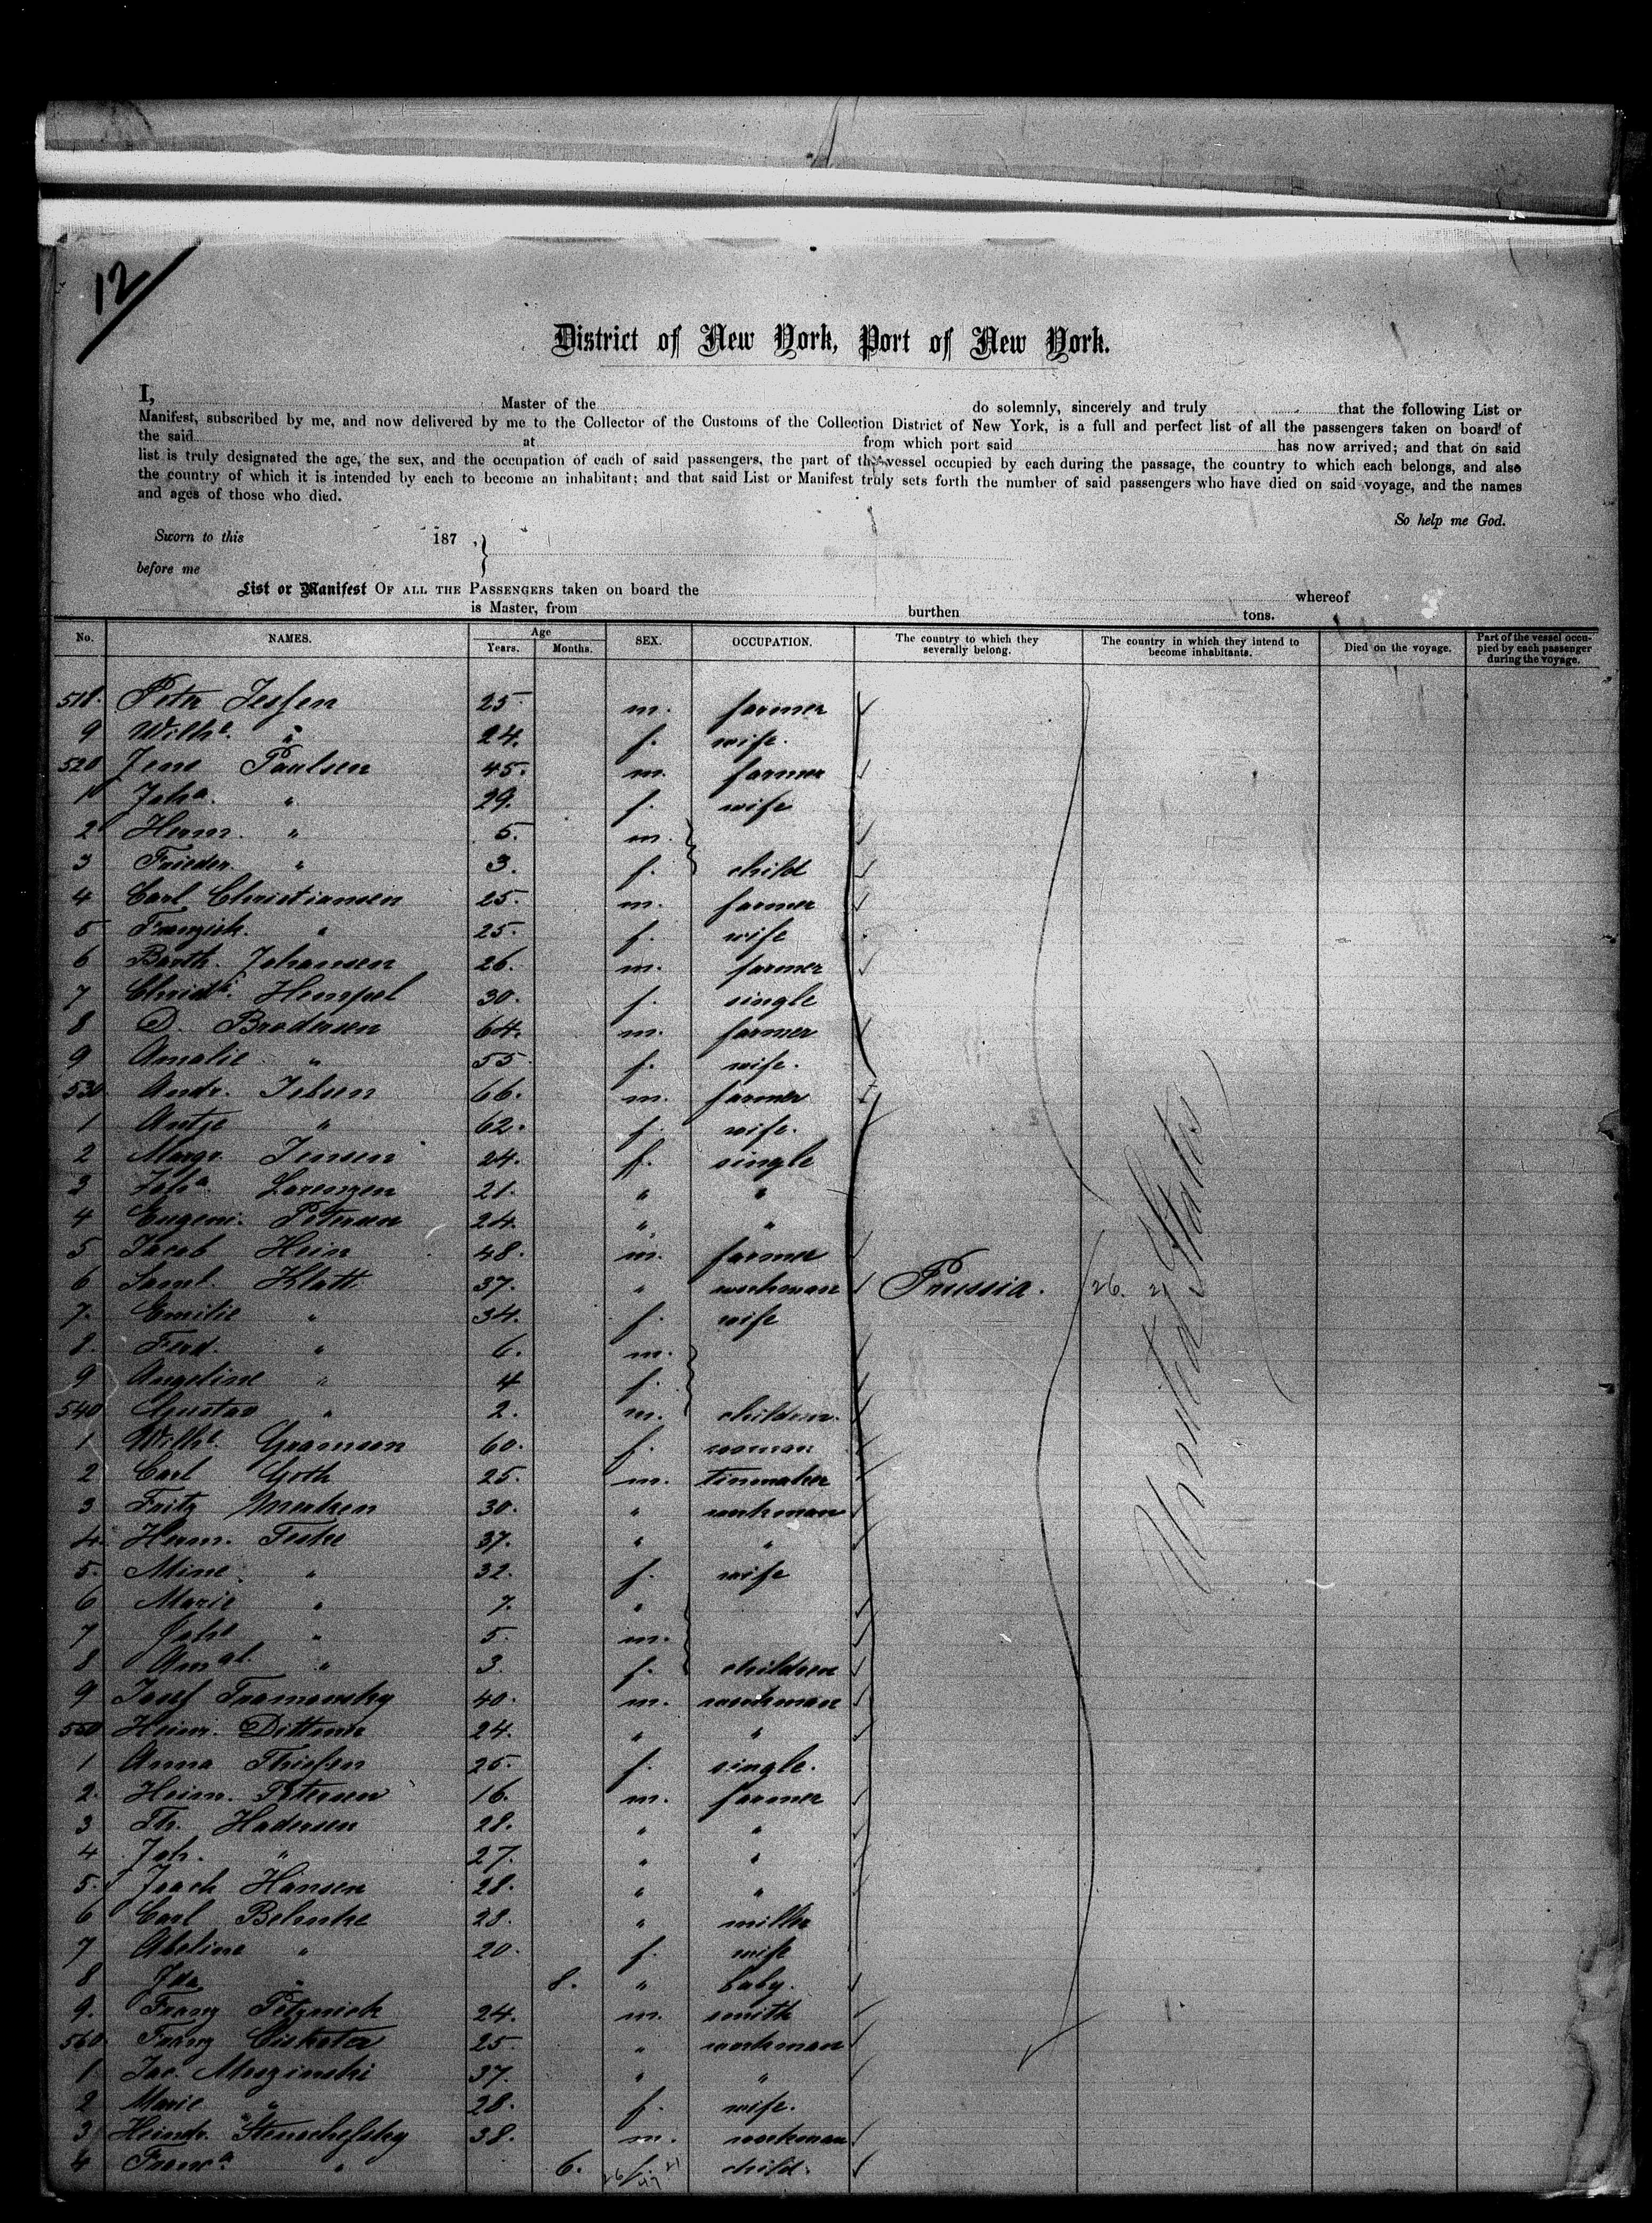 12
District of New York, Port of New York.
I, Master of the do solemnly, sincerely and truly that the following List or
Manifest, subscribed by me, and now delivered by me to the Collector of the Customs of the Collection District of New York, is a full and perfect list of all the passengers taken on board of
the said at from which port said has now arrived; and that on said
list is truly designated the age, the sex, and the occupation of each of said passengers, the part of the vessel occupied by each during the passage, the country to which each belongs, and also
the country of which it is intended by each to become an inhabitant; and that said List or Manifest truly sets forth the number of said passengers who have died on said voyage, and the names
and ages of those who died.
So help me God.
Sworn to this 187 , }
before me
List or Manifest OF ALL THE PASSENGERS taken on board the whereof
is Master, from burthen tons.
No. NAMES. Age Years. Months. SEX. OCCUPATION. The country to which they severally belong. The country in which they intend to become inhabitants. Died on the voyage. Part of the vessel occupied by each passenger during the voyage.
518. Peter Jessen 25 m. farmer
9 Wilhe. " 24. f. wife.
520 Jens Paulsen 45. m. farmer
1 Joha. " 29. f. wife
2 Herm. " 5. m.
3 Frieder. " 3. f. child
4 Carl Christiansen 25. m. farmer
5 Franzisk. " 25. f. wife
6 Barth. Johansen 26. m. farmer
7 Hempel 30. f. single
8 D. Brodersen 64. m. farmer
9 Amalie " 55 f. wife.
530 Andr. Ibsen 66. m. farmer
1 Antje " 62. f. wife.
2 Margr. Jensen 24. f. single
3 Joha. Lorenzen 21. " "
4 Eugeni. Petersen 24. " "
5 Jacob Hein 48. m. farmer
6 Saml. Klatt 37. " workman Prussia. 26. 21 United States
7. Emilie " 34. f. wife
8. Ferd. " 6. m.
9 Angeline " 4 f.
540 Gustav " 2. m. children.
1 Wilhe. Gramsen 60. f. woman
2 Carl Goth 25. m. tinmaker
3 Fritz 30. " workman
4. Herm. Teske 37. " "
5. Mine " 32. f. wife
6 Marie " 7. "
7 Johe " 5. m.
8 Amal. " 3. f. children
9 Josef Tramowsky 40. m. workman
550 Heinr. Dittmer 24. " "
1 Anna Thiessen 25. f. single.
2. Heinr. Petersen 16. m. farmer
3 Th. Hadersen 28. " "
4 Joh. " 27. " "
5. Joach Hansen 28. " "
6 Carl Behnke 28. " miller
7 Abeline " 20. f. wife
8 Ida " 8. " baby.
9. Franz Petznick 24. m. smith
560 Franz 25. " workman
1 Jac. Moszinski 37. " "
2 Marie " 28. f. wife.
3 Heindr. 38. m. workman
4 Franca. " 6. f. child.
26/47 21